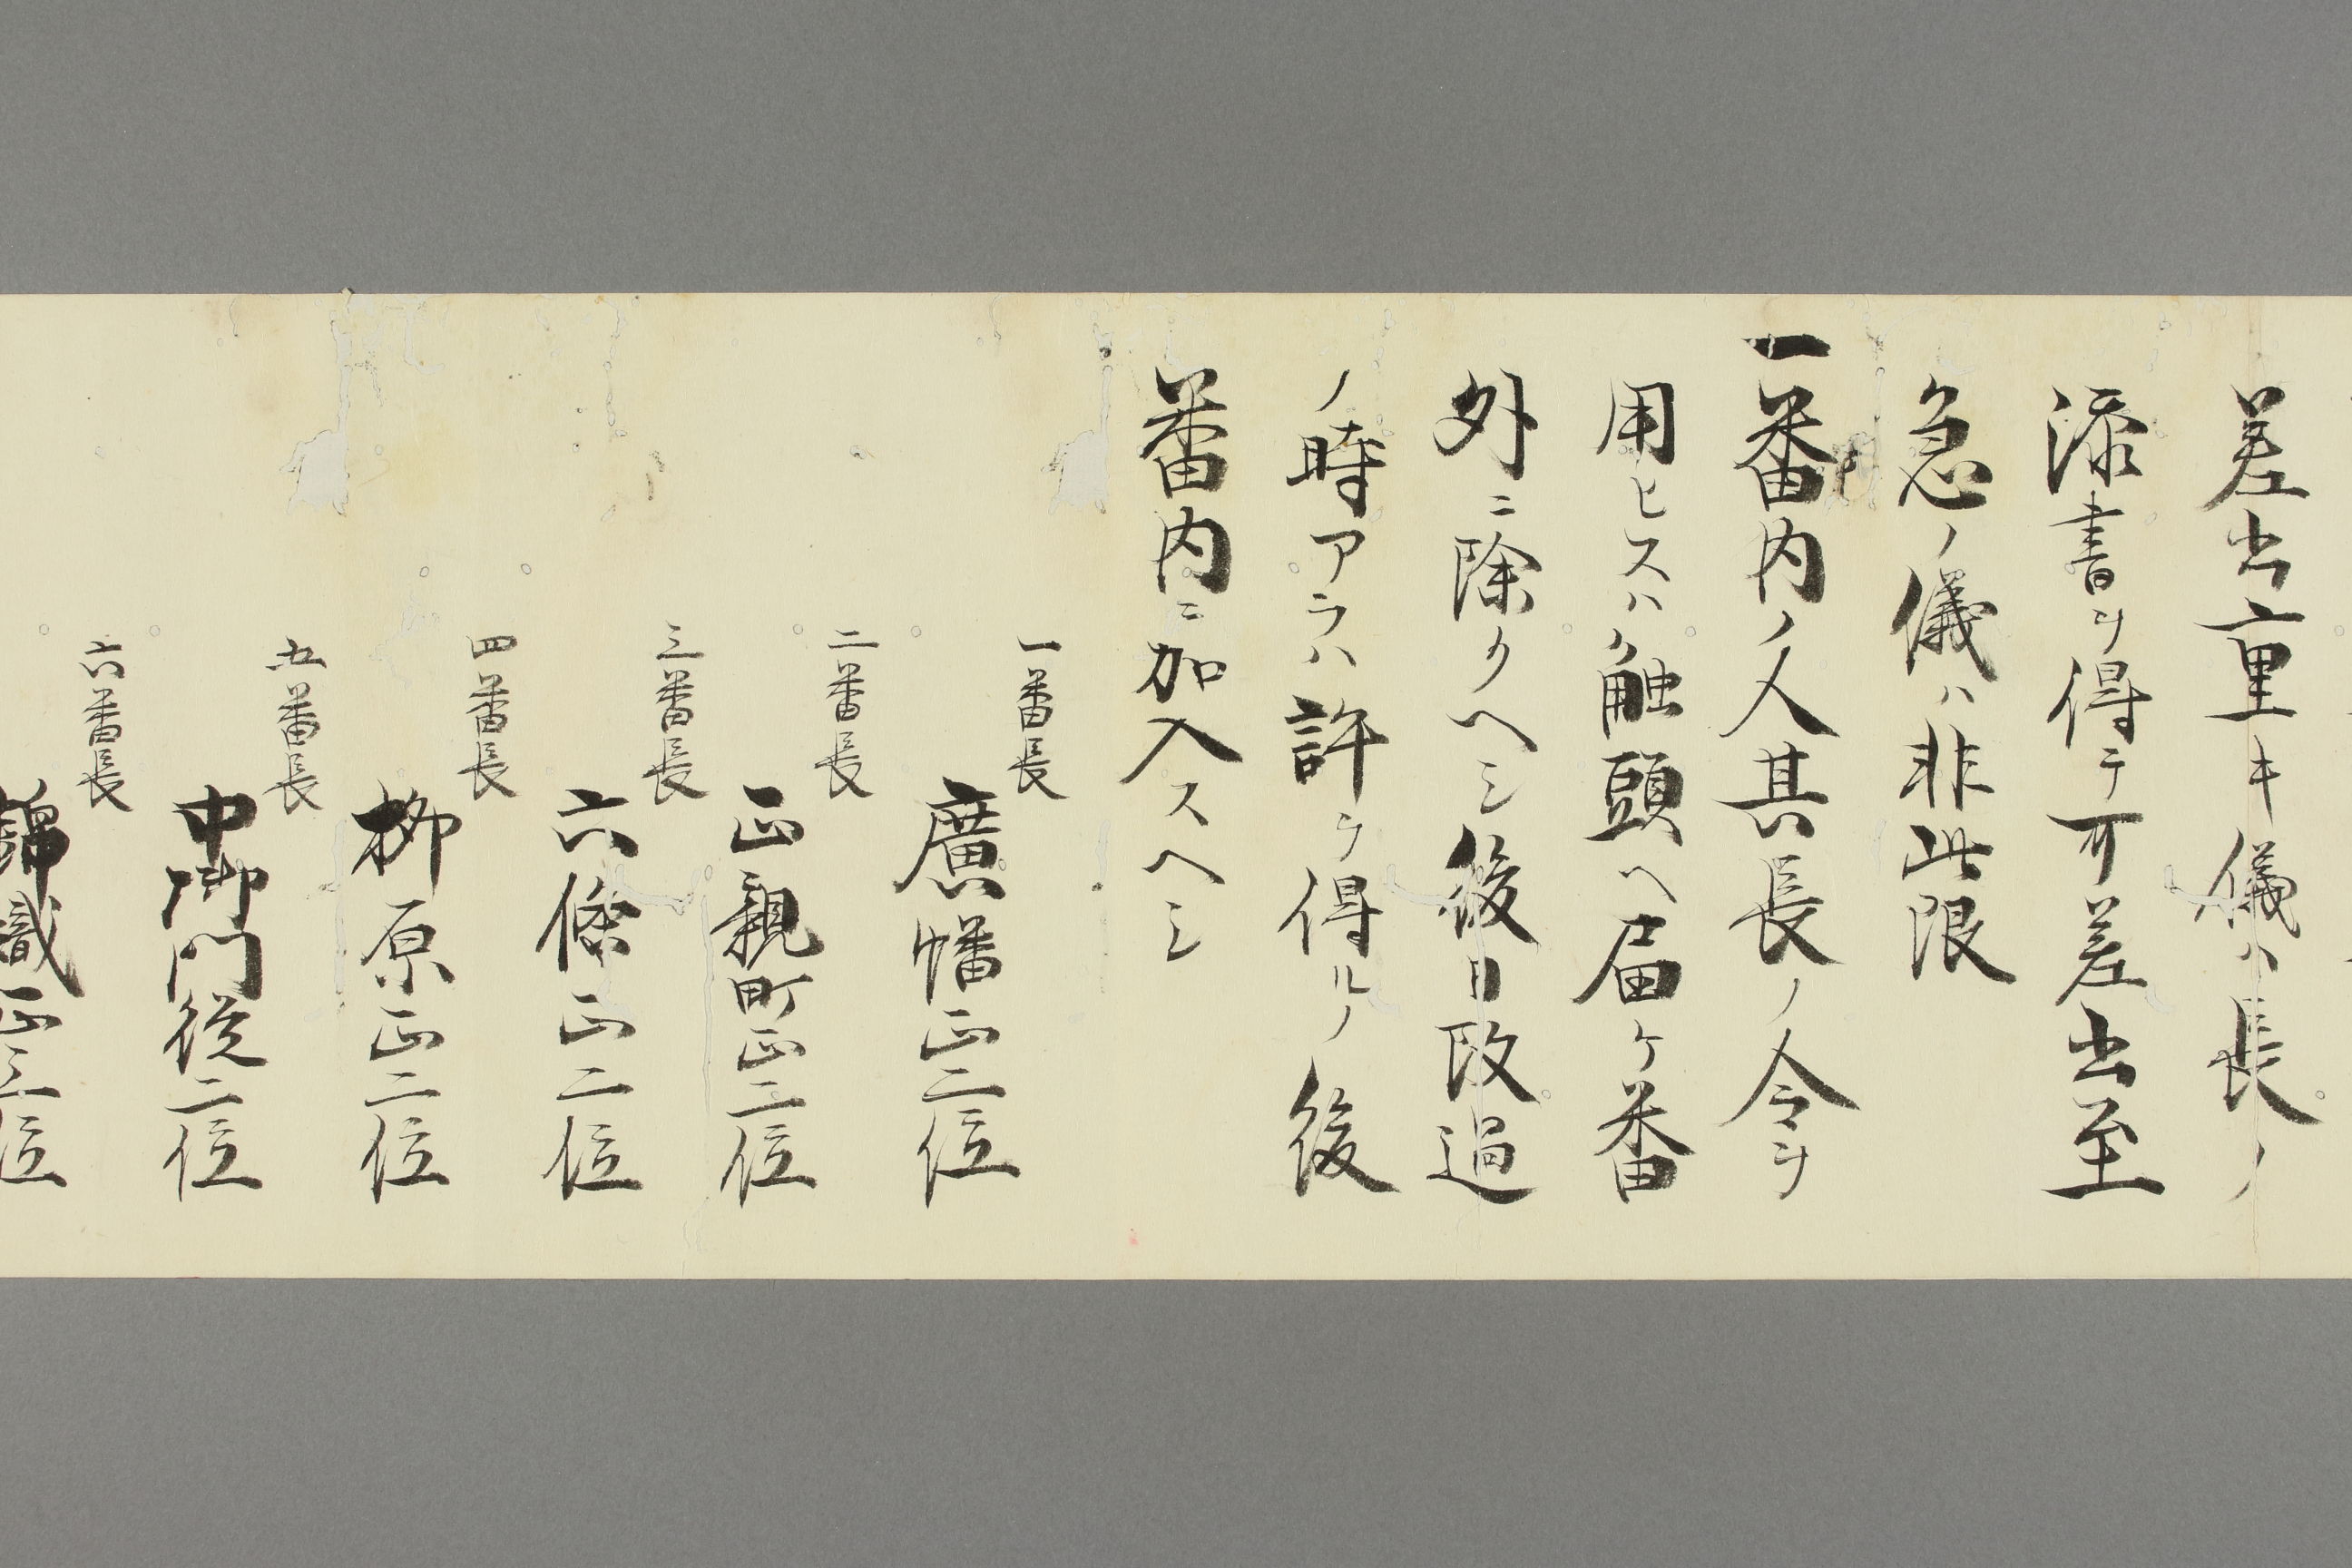 差出重キ儀ハ長ノ
添書ヲ得テ可差出至
急ノ儀ハ非此限
一番内ノ人其長ノ令ヲ
用ヒスハ触頭ヘ届ケ番
外ニ除クヘシ後日改過
ノ時アラハ許ヲ得ルノ後
番内ニ加入スヘシ
一番長
廣幡正二位
二番長
正親町正二位
三番長
六條正二位
四番長
柳原正二位
五番長
中御門従二位
六番長
錦織正三位